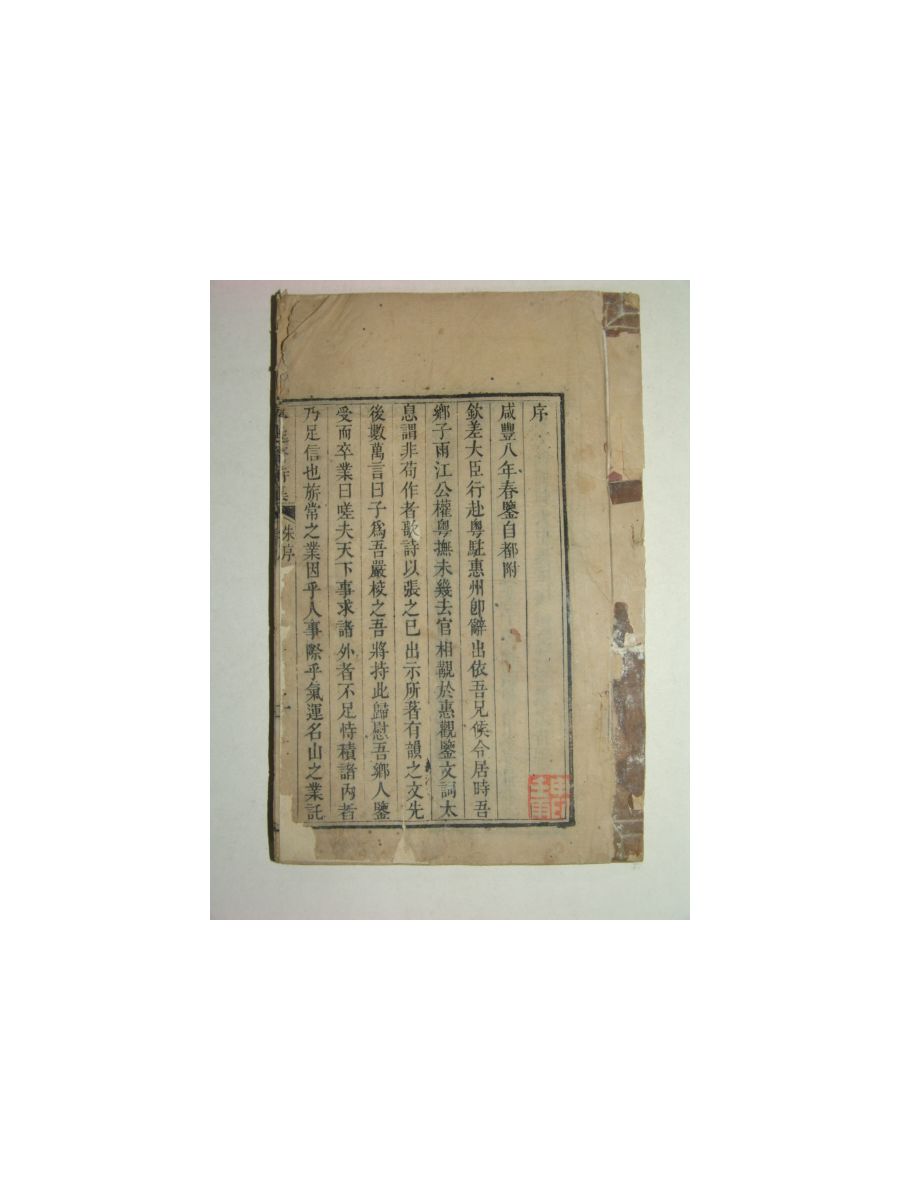 序
咸豐八年春鑒自都附
欽差大臣行赴粵駐惠州卽辭出依吾兄侯令居時吾
鄉子雨江公權粵撫未幾去官相覯於惠觀鑒文詞太
息謂非苟作者歌詩以張之已出示所著有韻之文先
後數萬言曰子爲吾嚴核之吾將持此歸慰吾鄉人鑒
受而卒業曰嗟夫天下事求諸外者不足恃積諸內者
乃足信也旂常之業因乎人事際乎氣運名山之業託
朱序